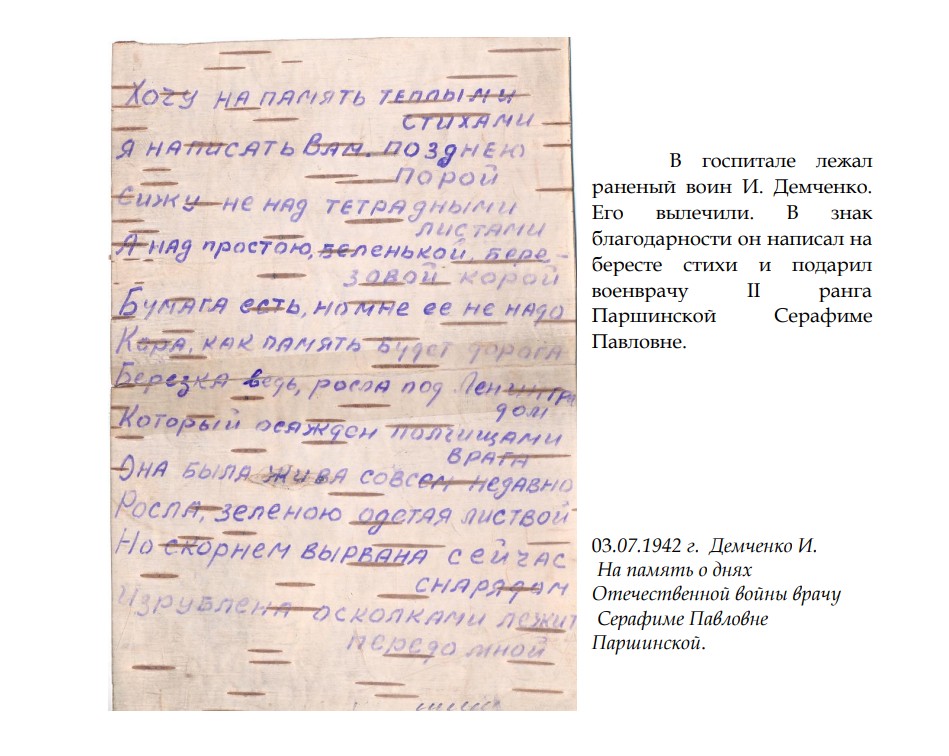 Хочу на память теплыми
стихами
Я написать Вам. позднею
порой
Сижу не над тетрадными
листами
А над простою, беленькой, бере-
зовой корой
Бумага есть, но мне ее не надо
Кора, как память будет дорога
Березка ведь, росла под Ленингра
дом
Который осажден полчищами
врага
Она была жива совсем недавно
Росла, зеленою одетая листвой
Но скорнем вырвана сейчас
снарядом
Изрублена осколками лежит
передо мной
В госпитале лежал
раненый воин И. Демченко.
Его вылечили. В знак
благодарности он написал на
бересте стихи и подарил
военврачу II ранга
Паршинской Серафиме
Павловне.
03.07.1942 г. Демченко И.
На память о днях
Отечественной войны врачу
Серафиме Павловне
Паршинской.